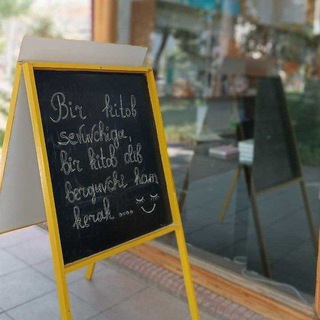 Bir kitob
sevuvchiga,
bir kitob deb
beriguvchi ham
kerak ....